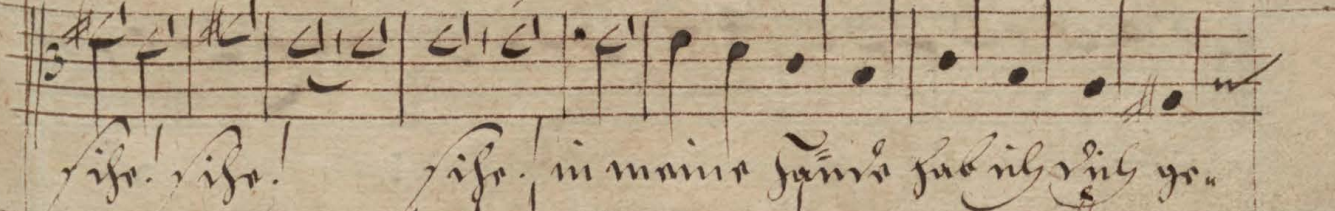 sihe! sihe! sihe! in meine Hände hab ich dich ge-